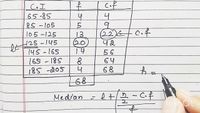 C.I f c.f
65-85 4 4
85-105 5 9
105-125 13 22 → c.f
l← 125-145 20 42
145-165 14 56
165-185 8 64
185-205 4 68
68
h =
Median = l + n/2 - c.f
f